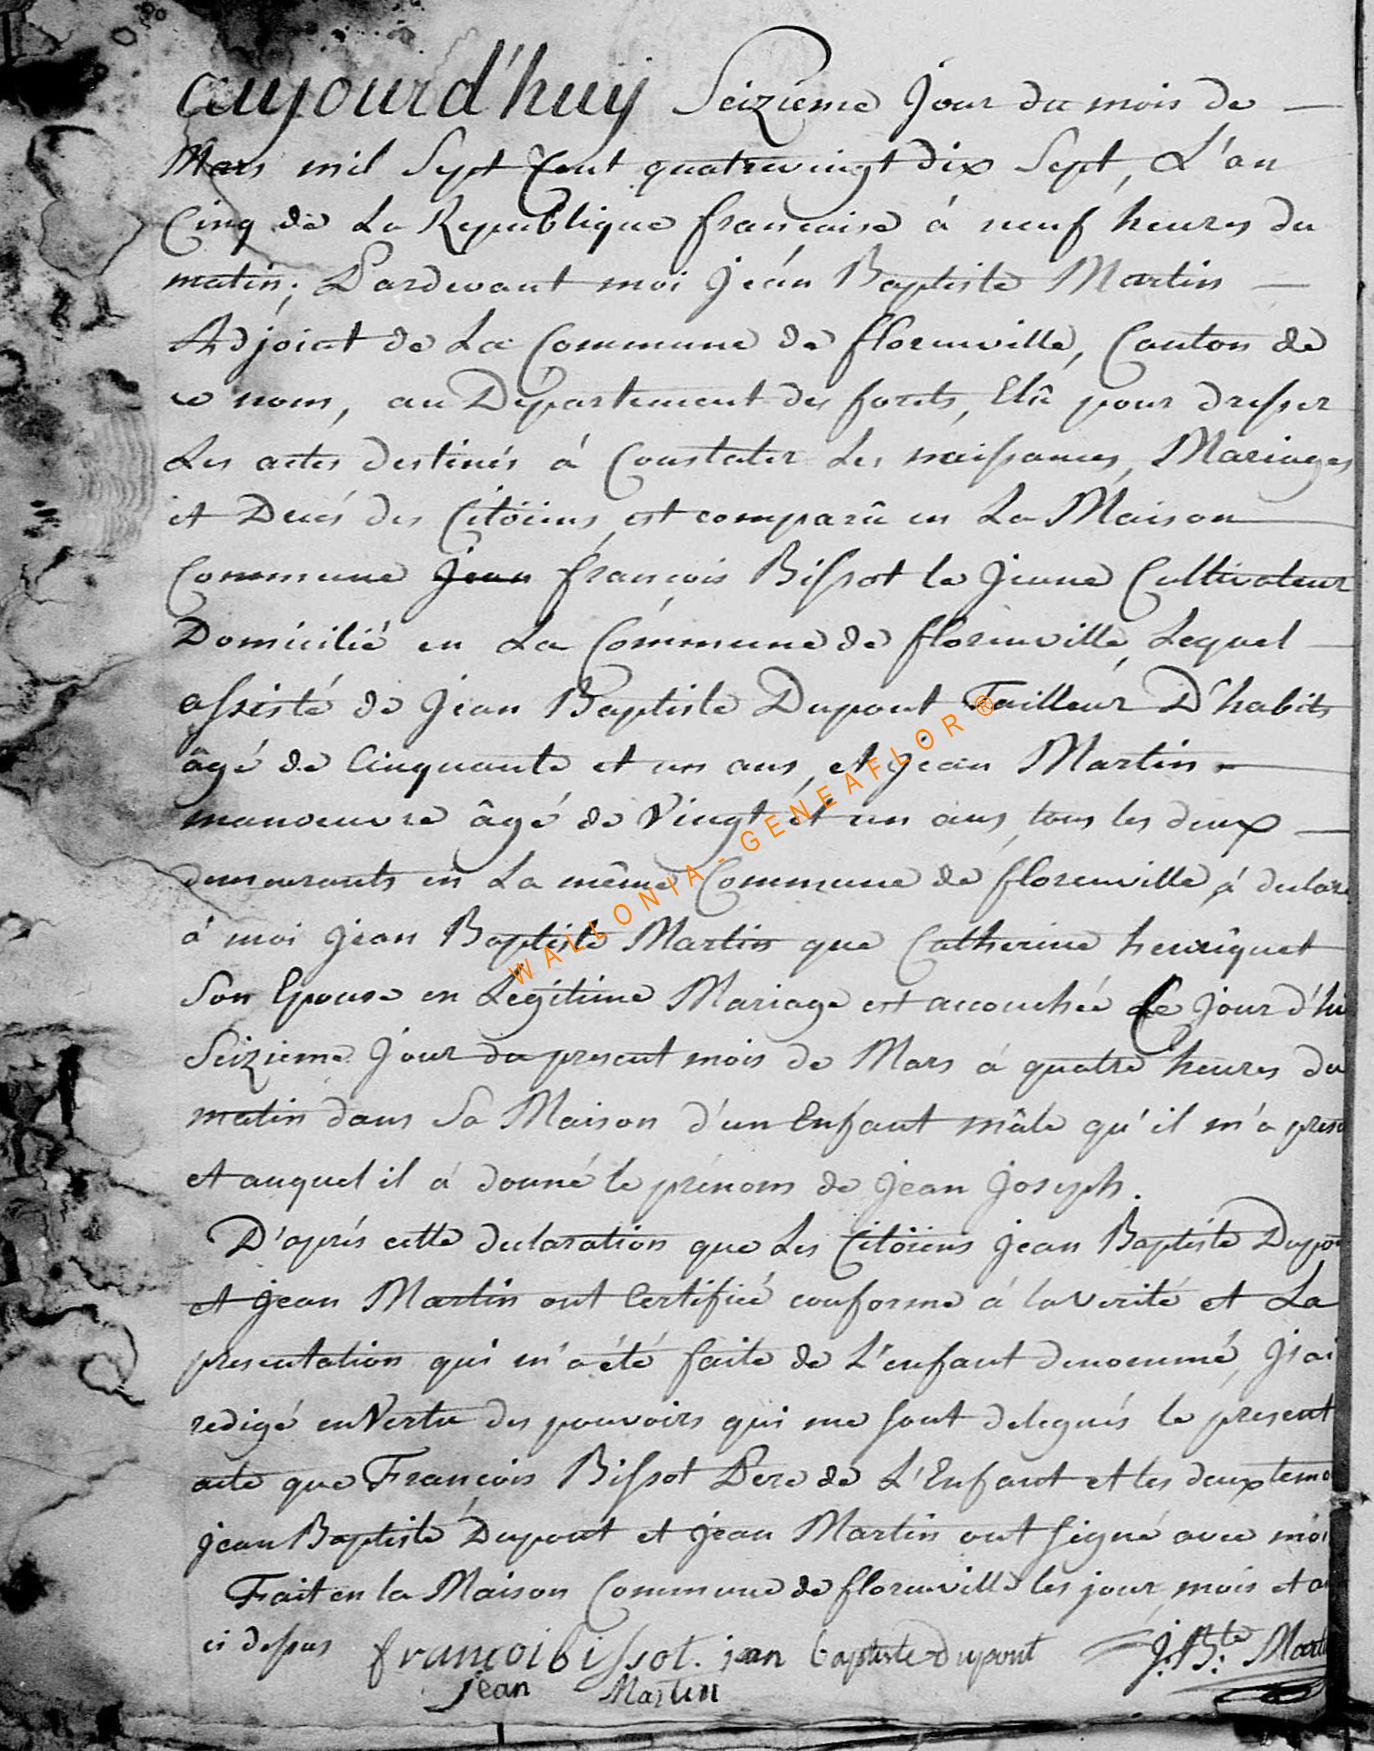 aujourd'huÿ Seizième Jour du mois de —
Mars mil Sept Cent quatrevingt dix Sept, L'an
Cinq de La Republique francaise à neuf heures du
matin; Pardevant moi Jean Baptiste Martin —
Adjoint de La Commune de florenville, Canton de
ce nom, au Département des forets, Elû pour dresser
Les actes destinés à Constater Les naissances, Mariages
et Decés des Citöiens, est comparû en La Maison
Commune jean françois Bissot le Jeune Cultivateur
Domicilié en La Commune de florenville, Lequel —
assisté de Jean Baptiste Dupont Tailleur D'habits
âgé de Cinquante et un ans, et Jean Martin —
manoeuvre âgé de Vingt et un ans, tous les deux —
demeurants en La même Commune de florenville, à declaré
à moi Jean Baptiste Martin que Catherine henriquet
Son Epouse en Legitime Mariage est accouchée Ce Jour d'hui
Seizieme Jour du present mois de Mars à quatre heures du
matin dans Sa Maison d'un Enfant mâle qu'il m'a prese
et auquel il à donné le prénom de Jean Joseph.
D'après cette declaration que Les Citöiens Jean Baptiste Dupon
et Jean Martin ont Certifié conforme à la Verité et La
presentation qui m'a été faite de L'enfant denommé, J'ai
redigé en Vertu des pouvoirs qui me sont delegués le present
acte que François Bissot Pere de L'Enfant et les deux temo
jean Baptiste Dupont et jean Martin ont signé avec moi
Fait en la Maison Commune de florenville les jour, mois et a
ci dessus françoi bissot. jean baptiste dupont J. Bte. Mart
jean Martin
WALLONIA - GENEAFLOR ®